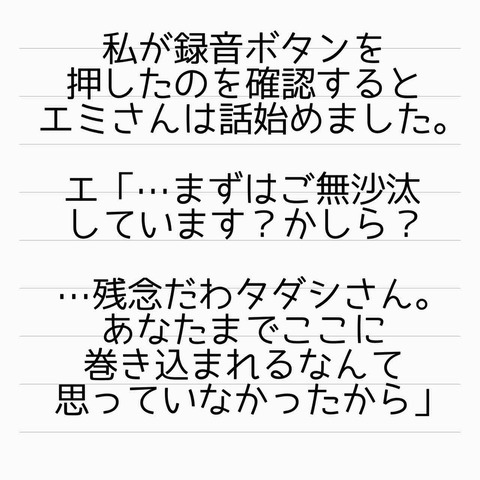 私が録音ボタンを
押したのを確認すると
エミさんは話始めました。
エ「…まずはご無沙汰
しています？かしら？
…残念だわタダシさん。
あなたまでここに
巻き込まれるなんて
思っていなかったから」